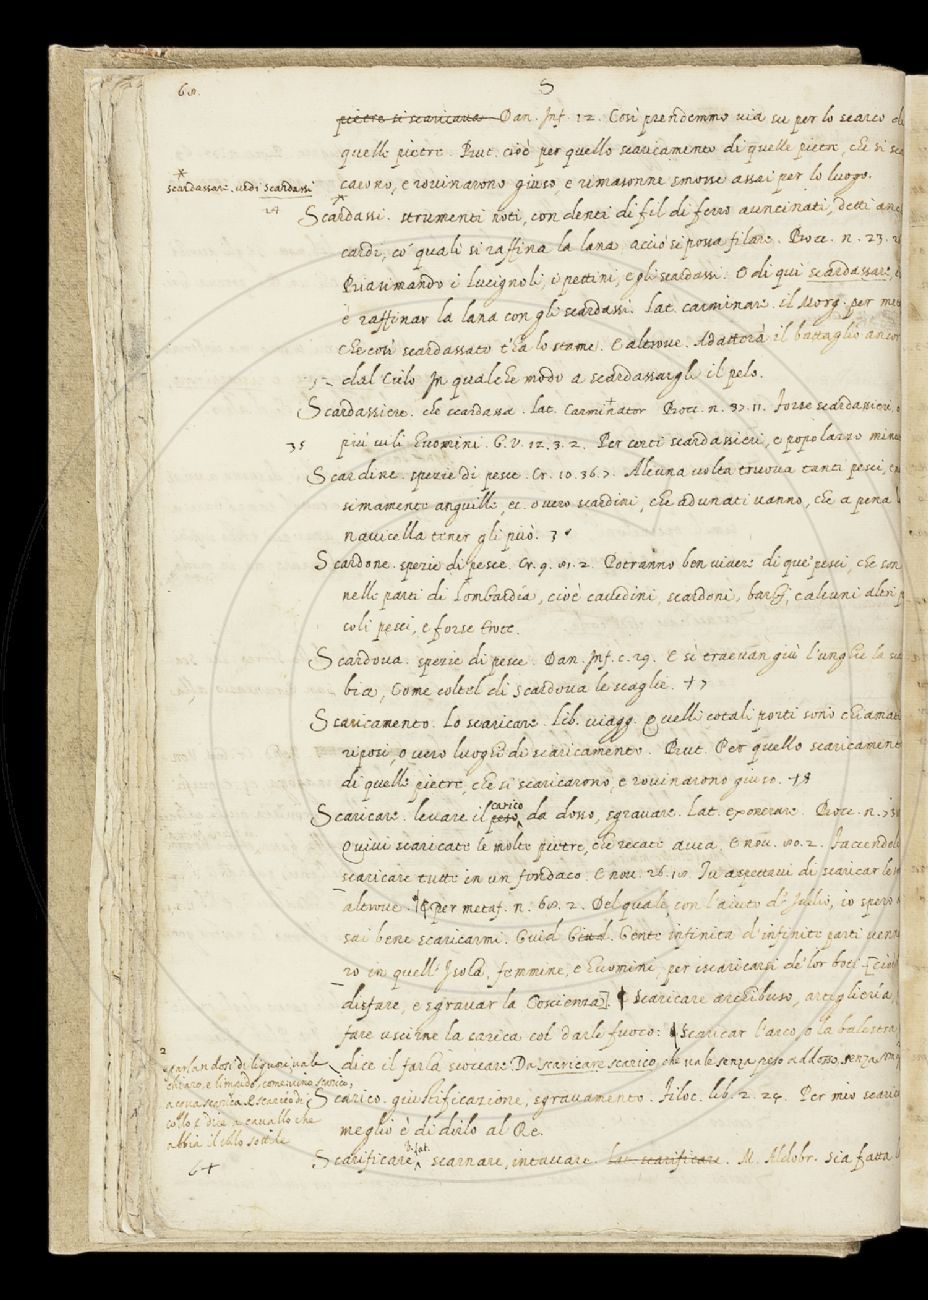 68.
S
pietre si scaricava Dan. Inf. 12. Così prendemmo via su per lo scarco
quelle pietre. But. cioè per quello scaricamento di quelle pietre, che si
scardassare. vedi scardassi
carono, e rovinarono giuso, e rimasonne smosse assai per lo luogo.
24
Scardassi. strumenti noti, con denti di fil di ferro auncinati, detti
cardi, co' quali si raffina la lana, acciò si possa filare. Bocc. n. 23.
Biasimando i lucignoli, i pettini, e gli scardassi. E di qui scardassare,
è raffinar la lana con gli scardassi. Lat. carminare. il Morg. per
che così scardassato t'ha lo stame. E altrove. Adatterà il battaglio ancor
dal Cielo In qualche modo a scardassargli il pelo.
Scardassiere. che scardassa. Lat. Carminator Bocc. n. 37. 11. Forse scardassieri,
35
più vili huomini. G. V. 12. 3. 2. Per certi scardassieri, e popolazzo
Scardine. spezie di pesce. Cr. 10. 36. 7. Alcuna volta truova tanti pesci,
simamente anguille, ec. overo scardini, che adunati vanno, che a pena
navicella tener gli può. 3
Scardone. spezie di pesce. Cr. 9. 81. 2. Potranno ben vivere di que' pesci, che son
nelle parti di Lombardia, cioè cavedini, scardoni, barbi, e alcuni altri
coli pesci, e forse trote.
Scardova. spezie di pesce. Dan. Inf. c. 29. E sì traevan giù l'unghie la
bia, Come coltel di Scardova le scaglie. + 7
Scaricamento. Lo scaricare. Lib. viagg. Quelli cotali porti sono chiamati
riposi, o vero luoghi di scaricamento. But. Per quello scaricamento
di quelle pietre, che si scaricarono, e rovinarono giuso. +8
Scaricare. levare il peso, carico da dosso, sgravare. Lat. exonerare. Bocc. n.
Quivi scaricate le molte pietre, che recate avea. E nov. 80. 2. Facendole
scaricare tutte in un fondaco. E nov. 26. 18. Tu aspettavi di scaricar le
altrove. per metaf. n. 68. 2. Del quale, con l'aiuto di Iddio, io spero
sai bene scaricarmi. Guid. Giud. Gente infinita d'infinite parti
ro in quell'Isola, femmine, e huomini, per iscaricarsi de' lor boti. [cioè
disfare, e sgravar la Coscienza]. Scaricare archibuso, artiglieria,
fare uscirne la carica col darle fuoco: Scaricar l'arco, o la balestra
2
parlandosi di liquori, vale
dice il farla scoccare. Da scaricare scarico, che vale senza peso addosso, senza
chiaro, e limpido, come vino scarico,
acqua scarica. E scarico di
Scarico. giustificazione, sgravamento. Filoc. lib. 2. 24. Per mio
collo, si dice a cavallo che
meglio è di dirlo al Re.
abbia il collo sottile
Scarificare. Lat. scarnare, intaccare. Lat. scarificare. M. Aldobr. Sia fatta